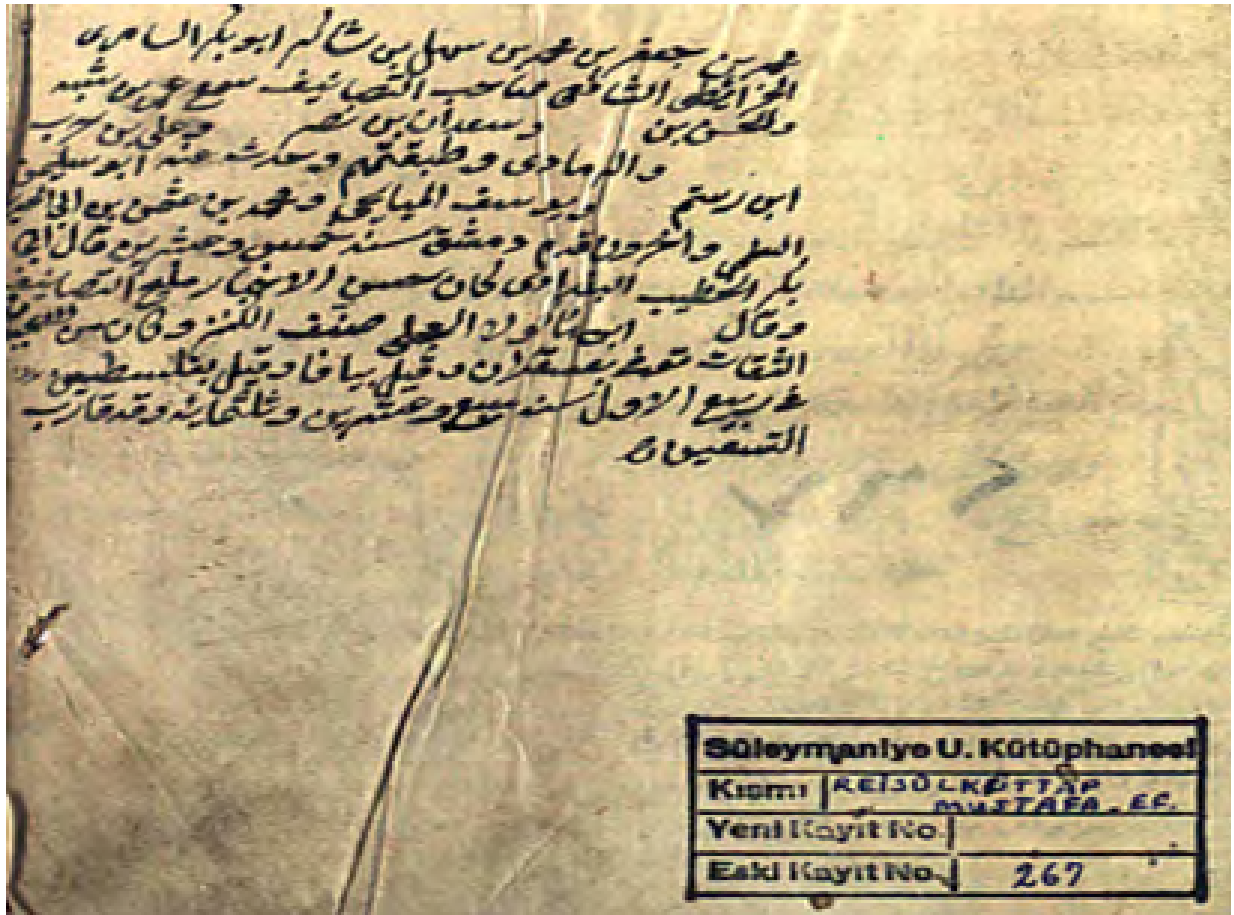 محمد بن جعفر بن محمد بن سهل بن شاكر ابو بكر السامرى
الخرائطى الشافعى صاحب التصانيف سمع عمر بن شبه
والحسن بن وسعدان بن نصر وعلى بن حرب
والرمادى وطبقتهم وحدث عنه ابو سليمن
ابن زبر ويوسف الميانجى ومحمد بن عثمن بن ابى
السلمى وآخرون قدم دمشق سنه خمس وعشرين قال ابى
بكر الخطيب البغدادى كان حسن الاخبار مليح التصانيف
وقال ابن ماكولا صنف الكثر وكان من
الثقات توفى بعسقلان وقيل بيافا وقيل بفلسطين
فى ربيع الاول سنه سبع وعشرين وثلثمايه وقد قارب
التسعين
Süleymaniye U. Kütüphanesi
Kısmı REİSÜLKÜTTAP
MUSTAFA. EF.
Yeni Kayıt No.
Eski Kayıt No. 267